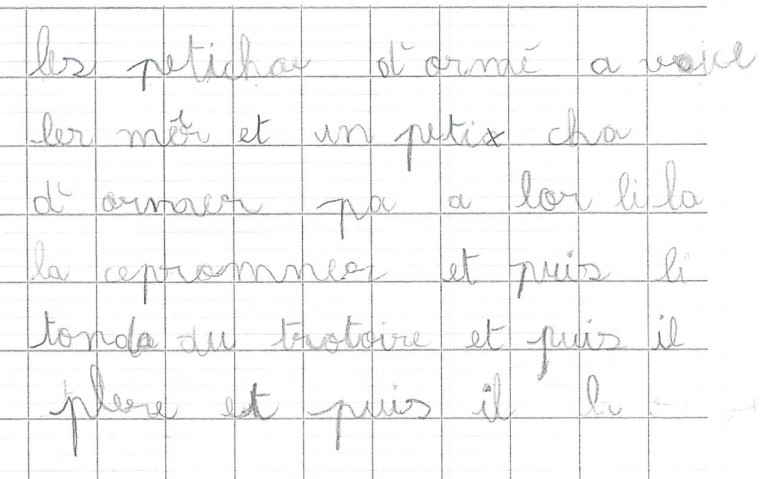 les petichao d'ormé a voice
ler mér et un petix cha
d'ormer pa a lor li la
la ceprommner et puis li
tonda du trotoire et puis il
pleore et puis il le